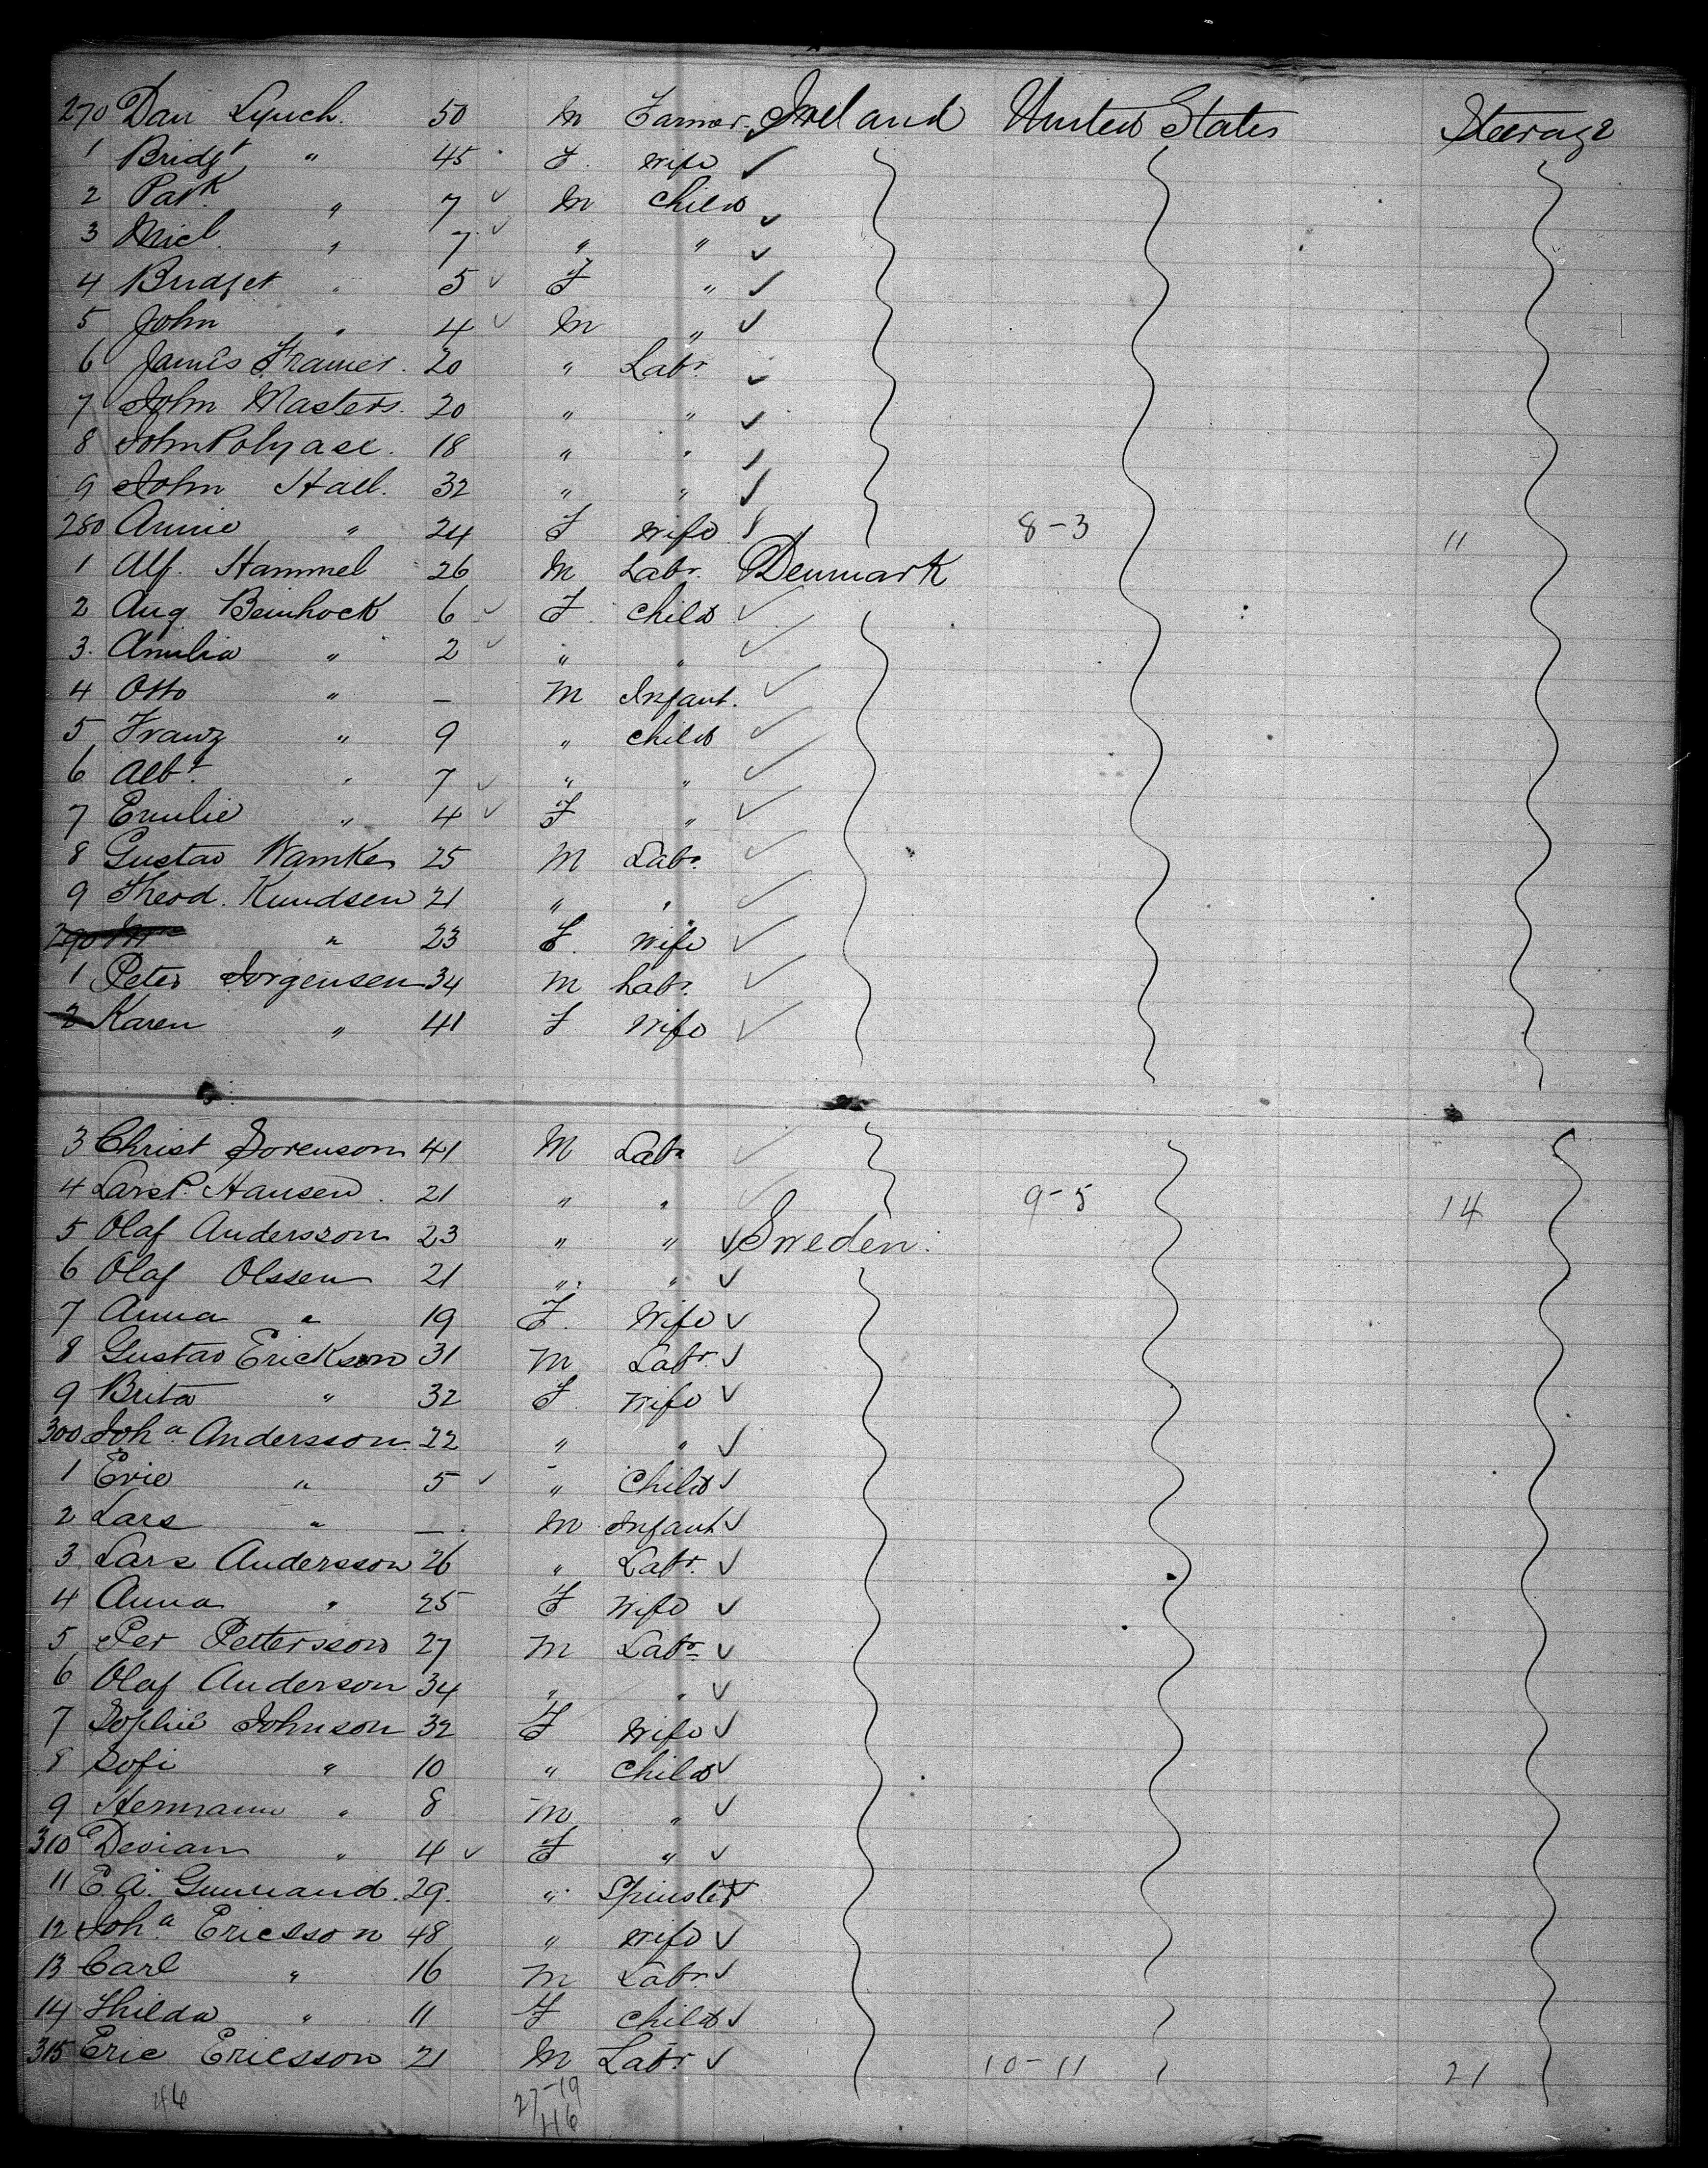 270 Dan Lynch. 50 M Farmer. Ireland United States Steerage
1 Bridgt " 45 F. Wife ✓
2 Patk " 7 ✓ M Child ✓
3 Micl. " 7 ✓ " " ✓
4 Bridget " 5 ✓ F " ✓
5 John " 4 ✓ M " ✓
6 James 20 " Labr. ✓
7 John Masters. 20 " " ✓
8 John 18 " " ✓
9 John Hall. 32 " " ✓
280 Annie " 24 F Wife ✓ 8-3 11
1 Alf. Hammel 26 M Labr. Denmark
2 Aug. Beinhock 6 ✓ F. Child ✓
3. Amilia " 2 ✓ " " ✓
4 Otto " — M Infant. ✓
5 Franz " 9 " Child ✓
6 Albt. " 7 ✓ " " ✓
7 Emilie " 4 ✓ F " ✓
8 Gustav Wamke 25 M Labr. ✓
9 Theod. Knudsen 21 " " ✓
290 " 23 F. Wife ✓
1 Peter Jorgensen 34 M Labr. ✓
2 Karen " 41 F Wife ✓
3 Christ Sorenson 41 M Labr ✓
4 Lars P. Hansen. 21 " " ✓ 9-5 14
5 Olaf Andersson 23 " " ✓ Sweden.
6 Olaf Olssen 21 " " ✓
7 Anna " 19 F. Wife ✓
8 Gustav Erickson 31 M Labr. ✓
9 Brita " 32 F. Wife ✓
300 Joha. Andersson. 22 " " ✓
1 Evie " 5 ✓ " Child ✓
2 Lars " — M Infant ✓
3 Lars Andersson 26 " Labr. ✓
4 Anna " 25 F Wife ✓
5 Per Pettersson 27 M Labr ✓
6 Olaf Anderson 34 " " ✓
7 Sophie Johnson 32 F Wife ✓
8 Sofi " 10 " Child ✓
9 Hermann " 8 M " ✓
310 Devian " 4 ✓ F " ✓
11 E. A. 29. " Spinster ✓
12 Joha. Ericsson 48 " Wife ✓
13 Carl " 16 M Labr. ✓
14 Thilda " 11 F Child ✓
315 Eric Ericsson 21 M Labr. ✓ 10-11 21
46 27-19
46